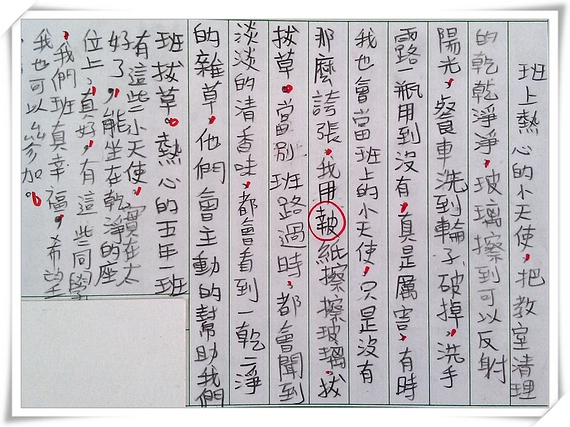 班上熱心的小天使,把教室清理
的乾乾淨淨,玻璃擦到可以反射
陽光,餐車洗到輪子破掉,洗手
露一瓶用到沒有,真是厲害,有時
我也會當班上的小天使,只是沒有
那麼誇張,我用報紙擦擦玻璃,拔
拔草。當別班路過時,都會聞到
淡淡的清香味,都會看到一乾二淨
的雜草,他們會主動的幫助我們
班拔草。熱心的五年一班
有這些小天使,實在太
好了,能坐在乾淨的座
位上,真好,有這些同學
,我們班真幸福,希望
我也可以參加。